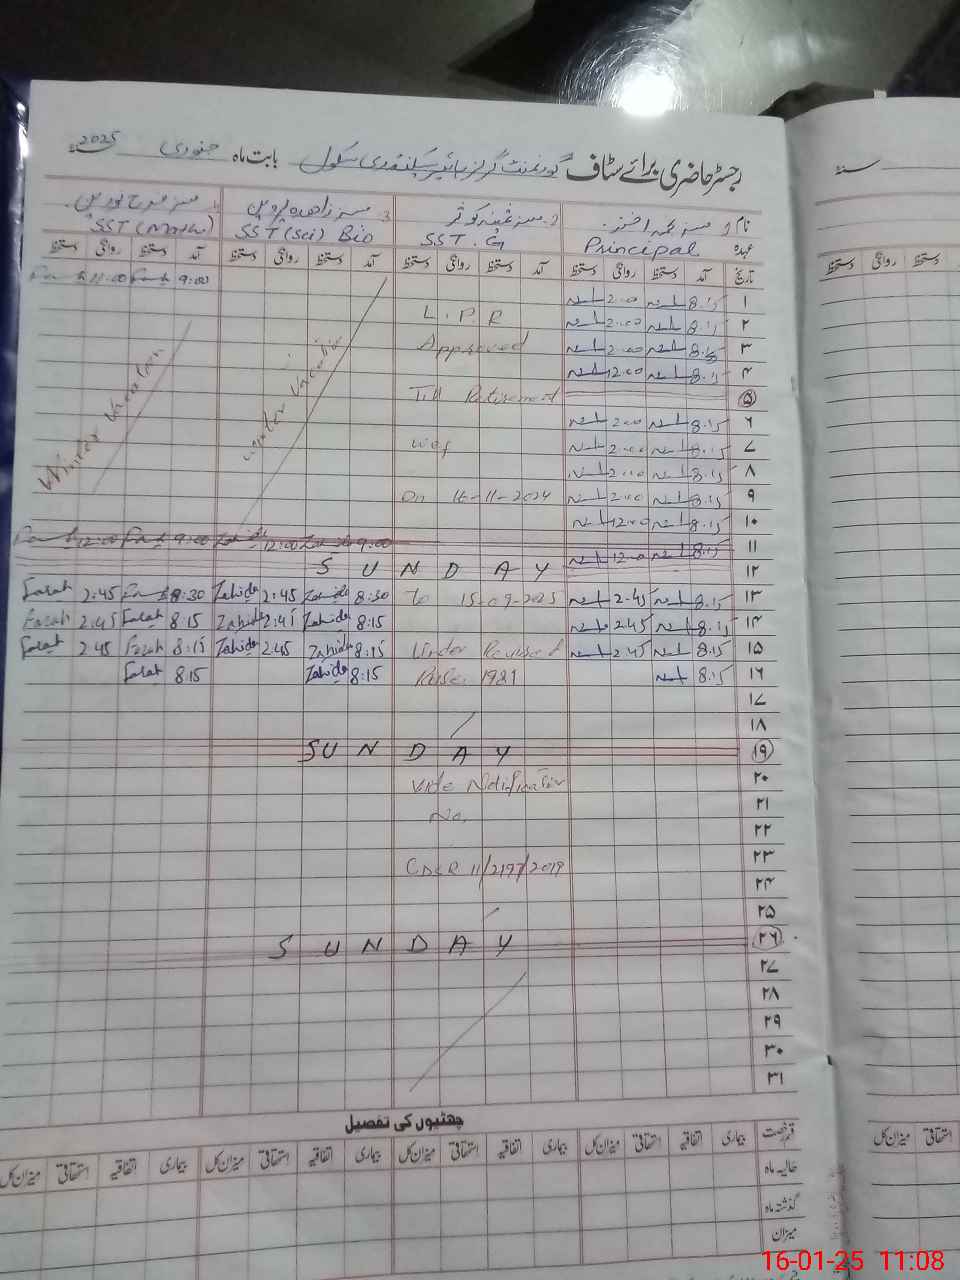 رجسٹر حاضری برائے سٹاف گورنمنٹ گرلز ہائیر سیکنڈری سکول بابت ماہ جنوری 2025
نام مسز اختر 2. مسز ثمینہ کوثر 3. مسز زاهده پروین 4. مسز فرح نورین
عہدہ Principal SST. G SST (Sci) Bio SST (Math)
تاریخ آمد دستخط روانگی دستخط آمد دستخط روانگی دستخط آمد دستخط روانگی دستخط آمد دستخط روانگی دستخط
9:00 Farah 11:00 Farah
۱ 8.15 2.00
۲ 8.15 2.00 L.P.R
۳ 8.15 2.00 Approved
۴ 8.15 12.00
۵ Till Retirement
۶ 8.15 2.00
۷ 8.15 2.00 wef
۸ 8.15 2.00
۹ 8.15 2.00 On 16-11-2024
۱۰ 8.15 12.00
Winter Vacation
Winter Vacation
۱۱ 8.15 12.00 9:00 Zahida 12:00 Zahida 9:00 Farah 12:00 Farah
۱۲ SUNDAY
۱۳ 8.15 2.45 To 15-09-2025 8:30 Zahida 2:45 Zahida 8:30 Farah 2:45 Farah
۱۴ 8.15 2.45 8:15 Zahida 2:45 Zahida 8:15 Farah 2:45 Farah
۱۵ 8.15 2.45 Under Revised 8:15 Zahida 2:45 Zahida 8:15 Farah 2:45 Farah
۱۶ 8.15 Rules 1981 8:15 Zahida 8:15 Farah
۱۷
۱۸
۱۹ SUNDAY
۲۰ Vide Notification
۲۱ No.
۲۲
۲۳ 11/2197/2019
۲۴
۲۵
۲۶ SUNDAY
۲۷
۲۸
۲۹
۳۰
۳۱
چھٹیوں کی تفصیل
قسم رخصت بیماری اتفاقیہ استحقاقی میزان کل بیماری اتفاقیہ استحقاقی میزان کل بیماری اتفاقیہ استحقاقی میزان کل بیماری اتفاقیہ استحقاقی میزان کل
حالیہ ماہ
گذشتہ ماہ
میزان
سنہ
دستخط روانگی دستخط
استحقاقی میزان کل
16-01-25 11:08